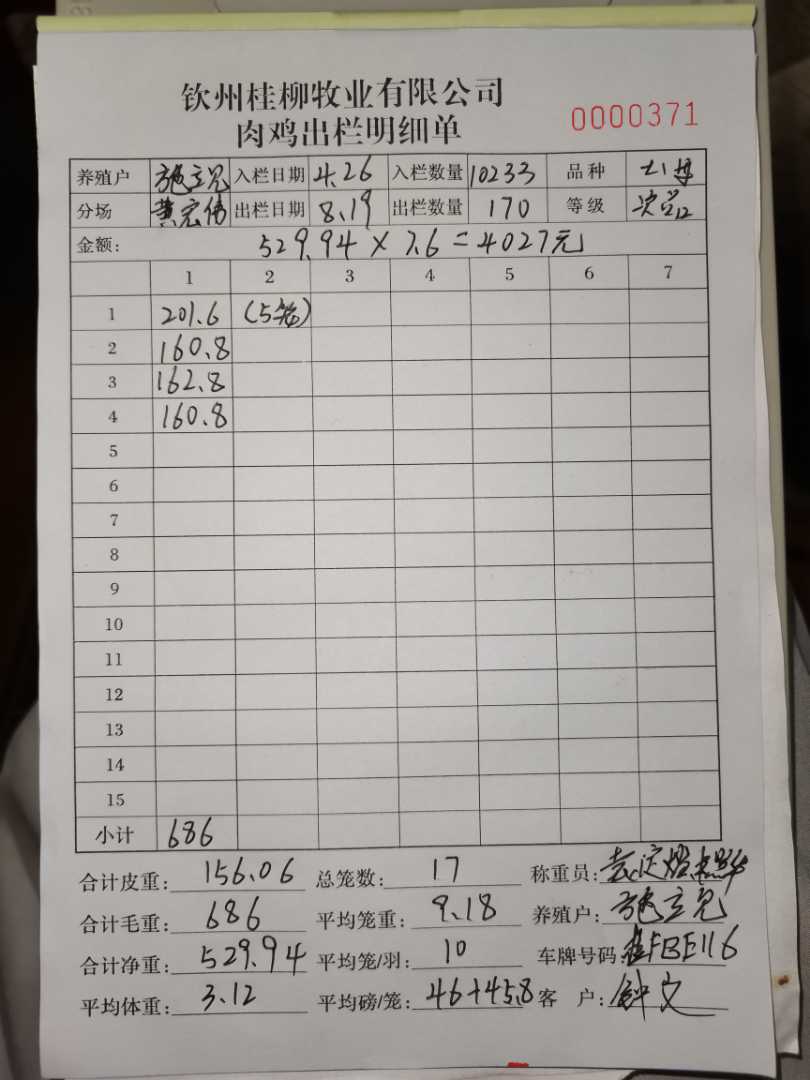 钦州桂柳牧业有限公司
肉鸡出栏明细单 0000371
养殖户 施立凫 入栏日期 4.26 入栏数量 10233 品种
分场 黄宏伟 出栏日期 8.19 出栏数量 170 等级
金额: 529.94 × 7.6 = 4027元
1 2 3 4 5 6 7
1 201.6 (5笼)
2 160.8
3 162.8
4 160.8
5
6
7
8
9
10
11
12
13
14
15
小计 686
合计皮重: 156.06 总笼数: 17 称重员:
合计毛重: 686 平均笼重: 9.18 养殖户: 施立凫
合计净重: 529.94 平均笼/羽: 10 车牌号码: 桂FBE116
平均体重: 3.12 平均磅/笼: 46+45.8 客 户: 钟文